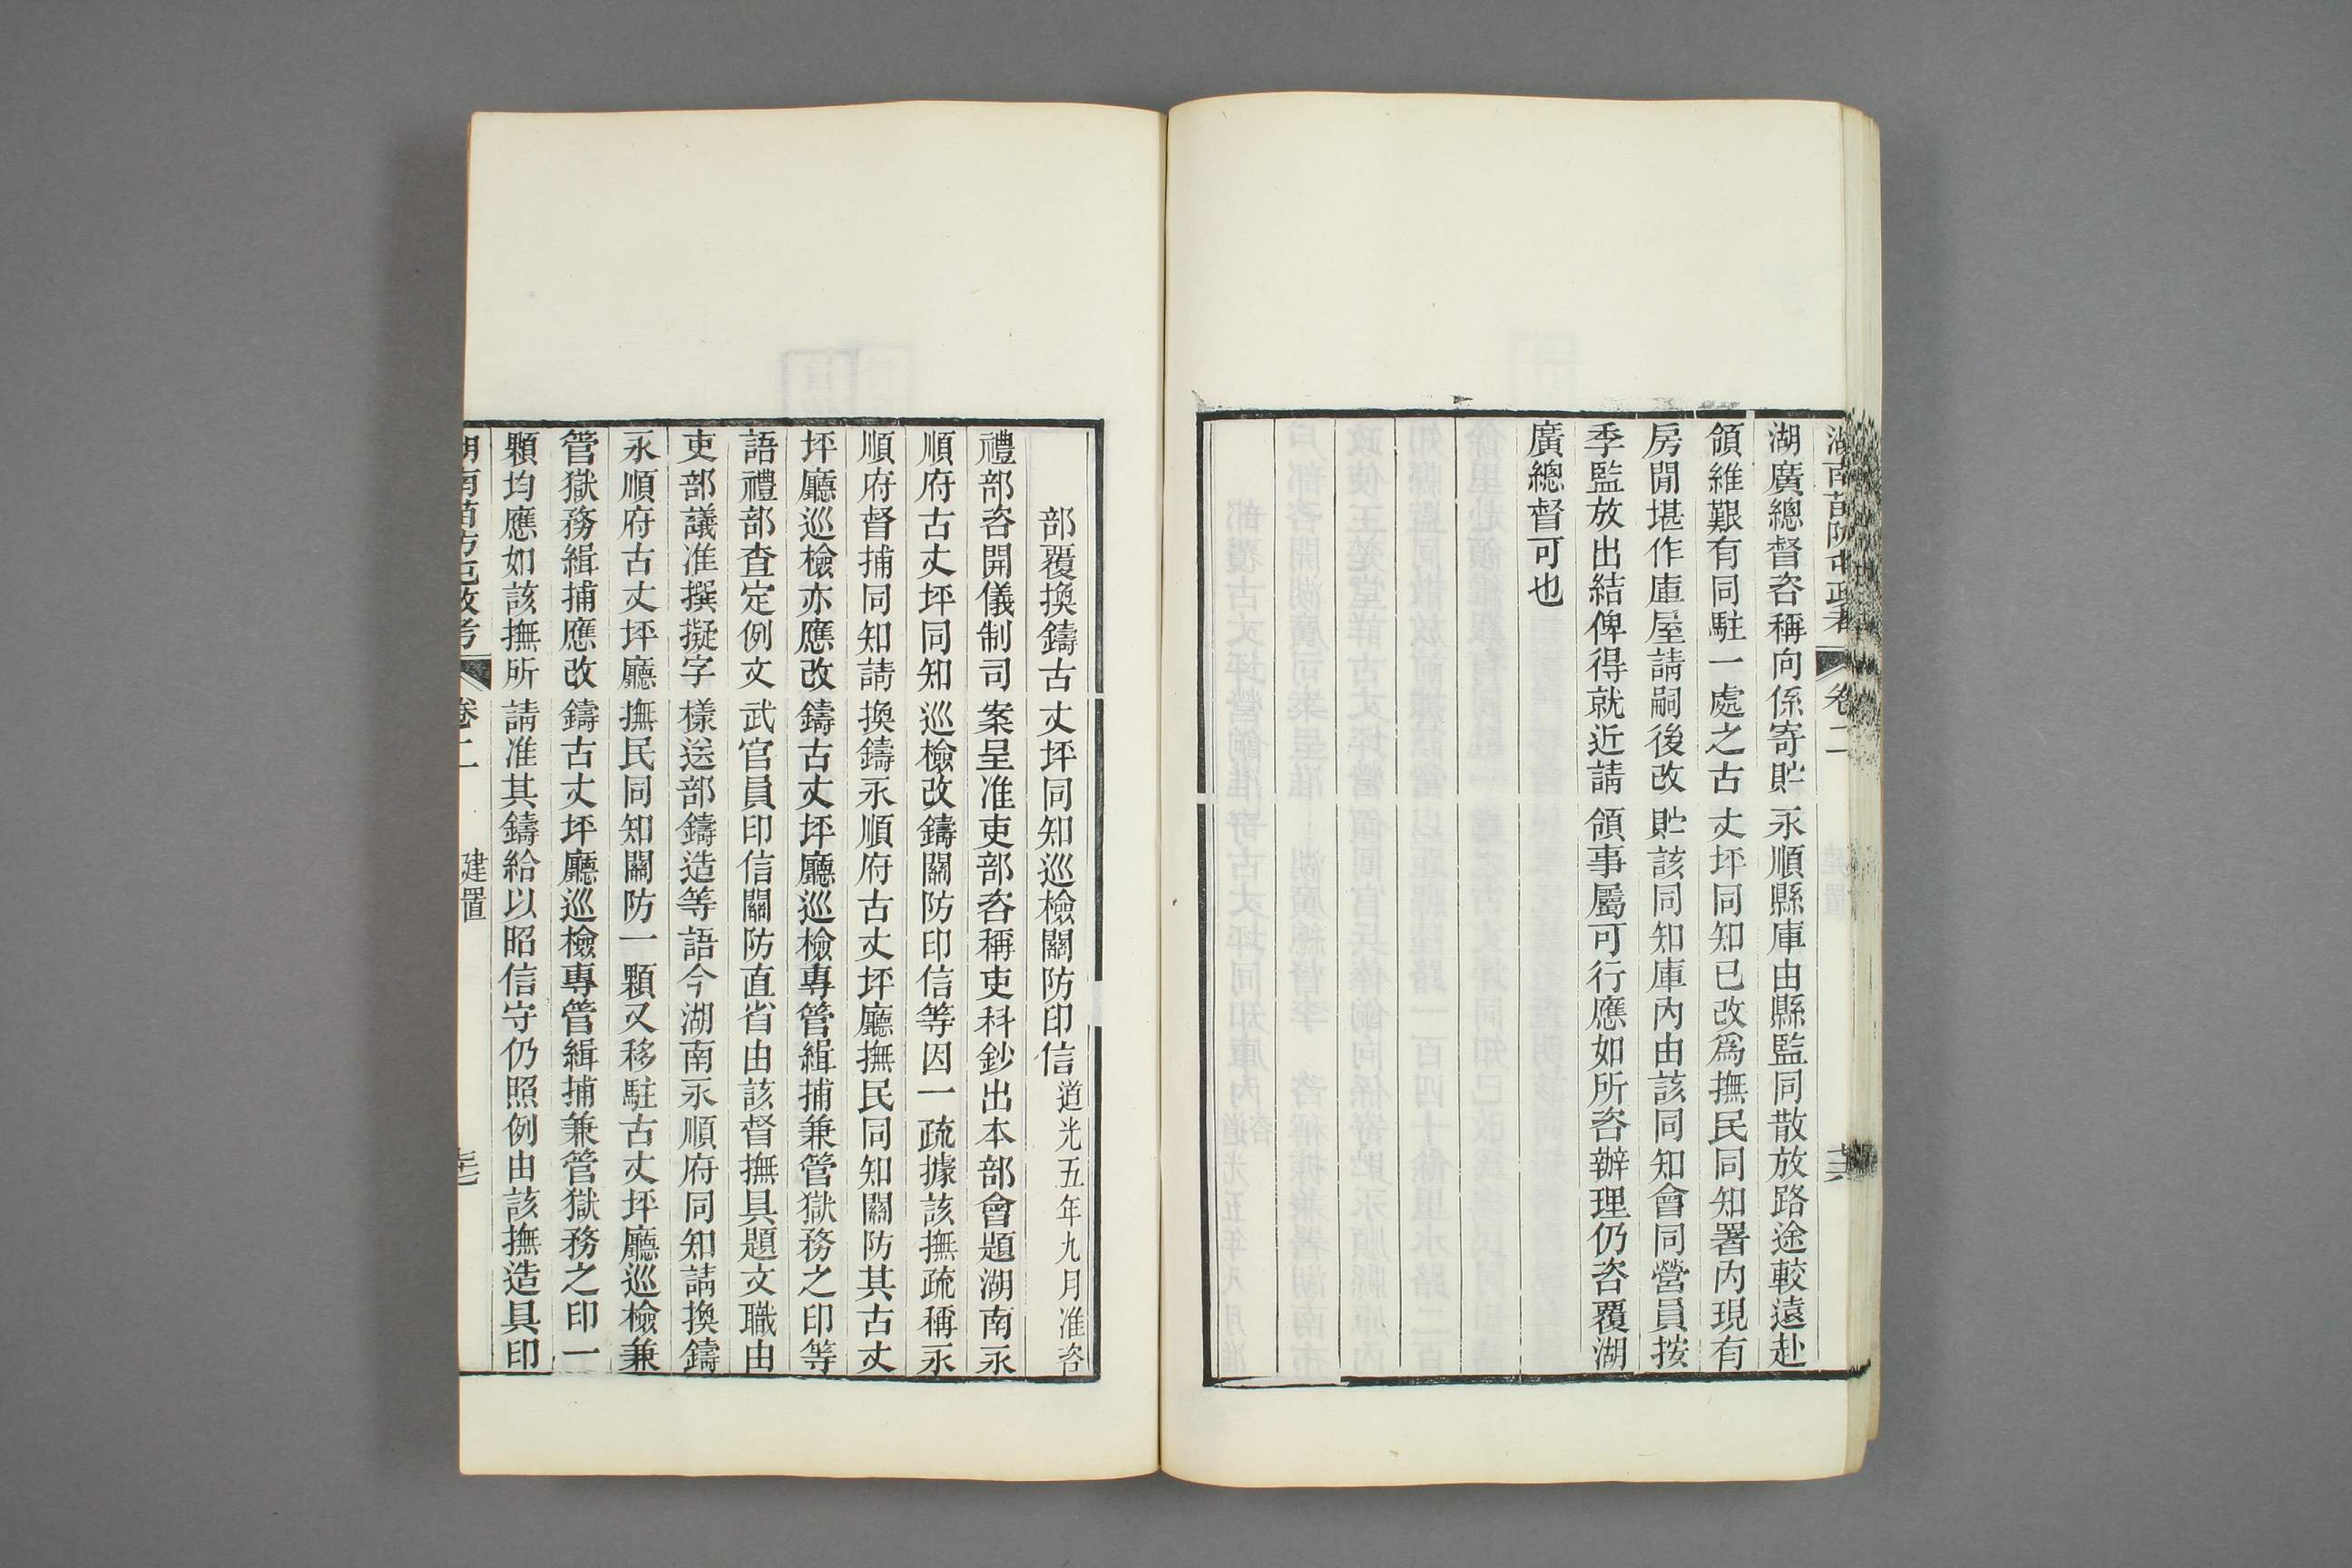 湖廣總督咨稱向係寄貯永順縣庫由縣監同散放路途較遠赴
領維艱有同駐一處之古丈坪同知已改爲撫民同知署內現有
房閒堪作庫屋請嗣後改貯該同知庫內由該同知會同營員按
季監放出結俾得就近請領事屬可行應如所咨辦理仍咨覆湖
廣總督可也
部覆換鑄古丈坪同知巡檢關防印信道光五年九月准咨
禮部咨開儀制司案呈准吏部咨稱吏科鈔出本部會題湖南永
順府古丈坪同知巡檢改鑄關防印信等因一疏據該撫疏稱永
順府督捕同知請換鑄永順府古丈坪廳撫民同知關防其古丈
坪廳巡檢亦應改鑄古丈坪廳巡檢專管緝捕兼管獄務之印等
語禮部查定例文武官員印信關防直省由該督撫具題文職由
吏部議准撰擬字樣送部鑄造等語今湖南永順府同知請換鑄
永順府古丈坪廳撫民同知關防一顆又移駐古丈坪廳巡檢兼
管獄務緝捕應改鑄古丈坪廳巡檢專管緝捕兼管獄務之印一
顆均應如該撫所請准其鑄給以昭信守仍照例由該撫造具印
湖南苗防屯政考 卷二 建置